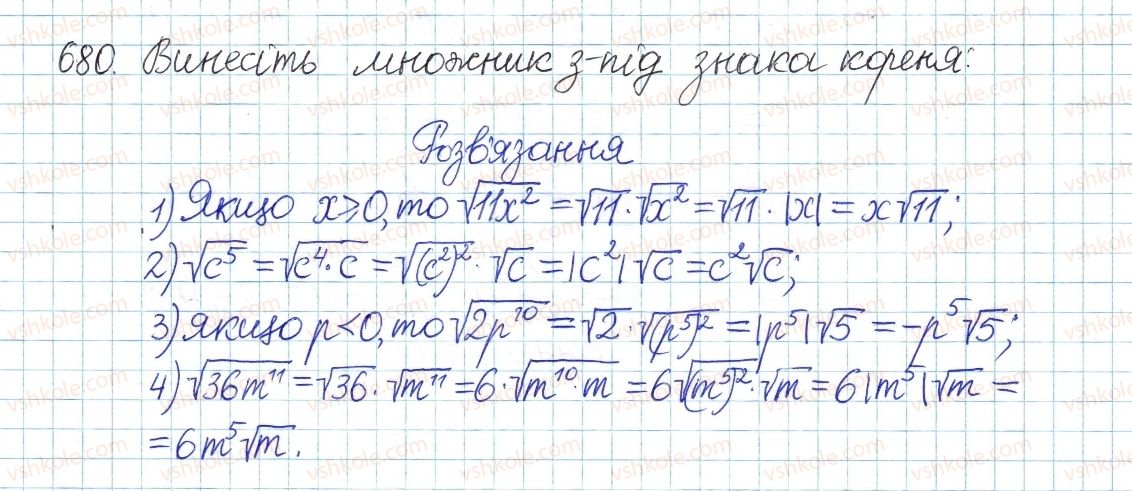 680. Винесіть множник з-під знака кореня:
Розв'язання
1) Якщо x⩾0, то √(11x²) = √11 · √(x²) = √11 · |x| = x√11;
2) √(c⁵) = √(c⁴·c) = √((c²)²) · √c = |c²|√c = c²√c;
3) якщо p<0, то √(2p¹⁰) = √2 · √((p⁵)²) = |p⁵|√5 = -p⁵√5;
4) √(36m¹¹) = √36 · √(m¹¹) = 6 · √(m¹⁰·m) = 6√((m⁵)²) · √m = 6|m⁵|√m =
= 6m⁵√m.